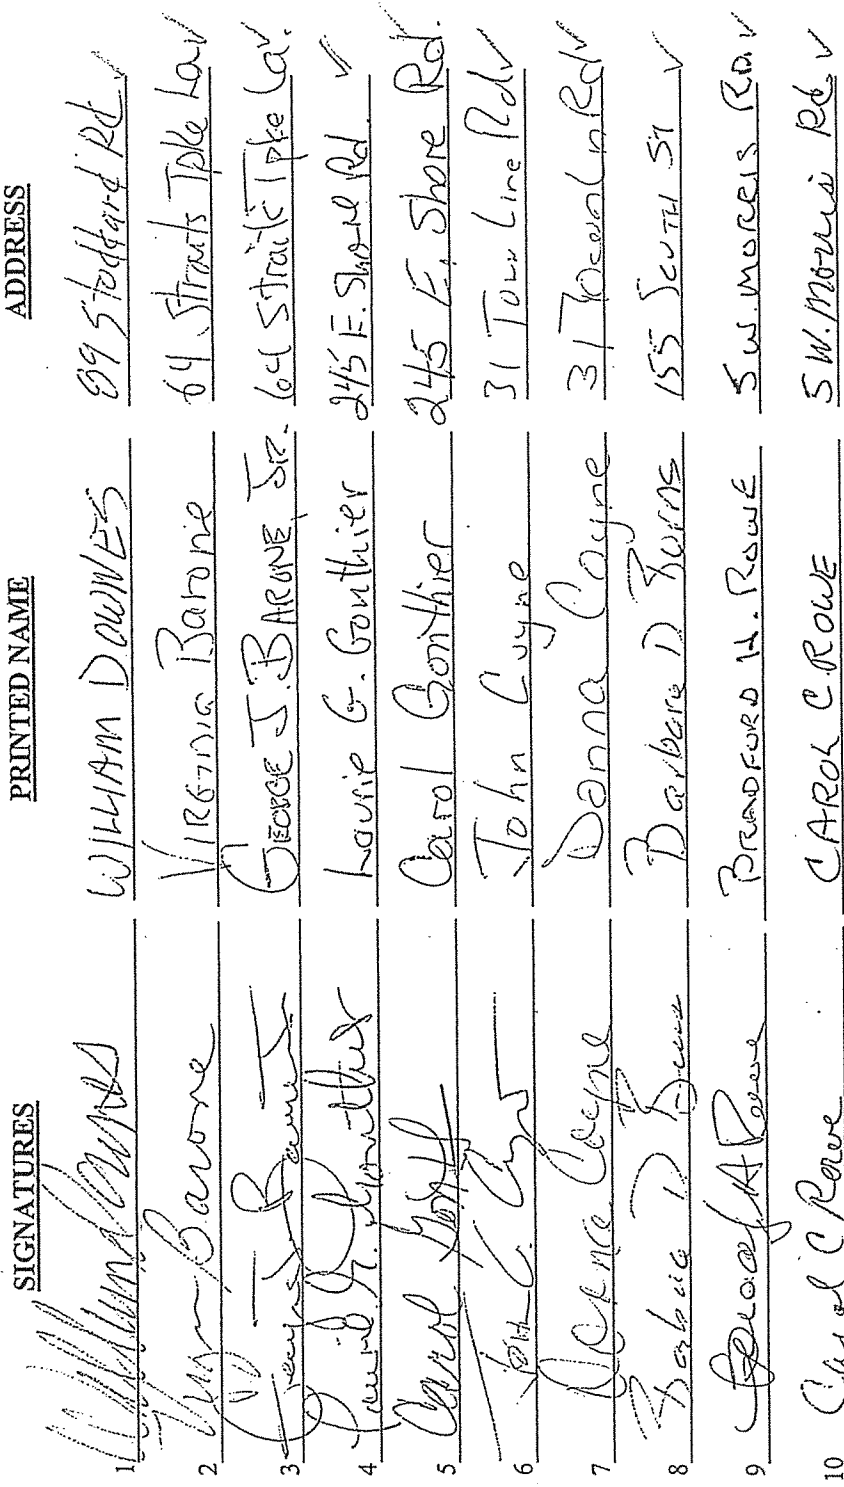 SIGNATURES PRINTED NAME ADDRESS
1 WILLIAM DOWNES 89 Stoddard Rd. ✓
2 Barone VIRGINIA Barone 64 Straits Tpke La ✓
3 GEORGE J. BARONE, JR. 64 Straits Tpke La ✓
4 Laurie G. Gonthier Laurie G. Gonthier 245 E. Shore Rd. ✓
5 Carol Carol Gonthier 245 E. Shore Rd.
6 John C. John Coyne 31 Town Line Rd ✓
7 Coyne Danna Coyne 31 Ln Rd ✓
8 Barbara D Burns Barbara D Burns 155 SOUTH ST ✓
9 BRADFORD H. ROWE 5 W. MORRIS RD. ✓
10 Carol C Rowe CAROL C. ROWE 5 W. Morris Rd. ✓